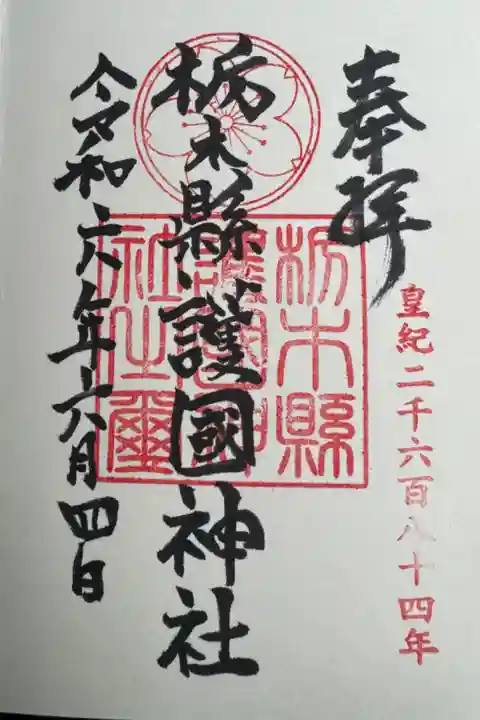 奉拝
皇紀二千六百八十四年
栃木縣護國神社
栃木縣
護國神
社之璽
令和六年六月四日